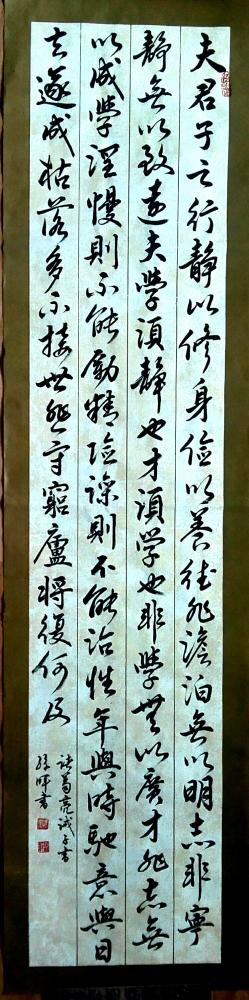 夫君子之行靜以修身儉以養德非澹泊無以明志非寧
靜無以致遠夫學須靜也才須學也非學無以廣才非志無
以成學淫慢則不能勵精險躁則不能治性年與時馳意與日
去遂成枯落多不接世悲守窮廬將復何及
諸葛亮誡子書
暉書